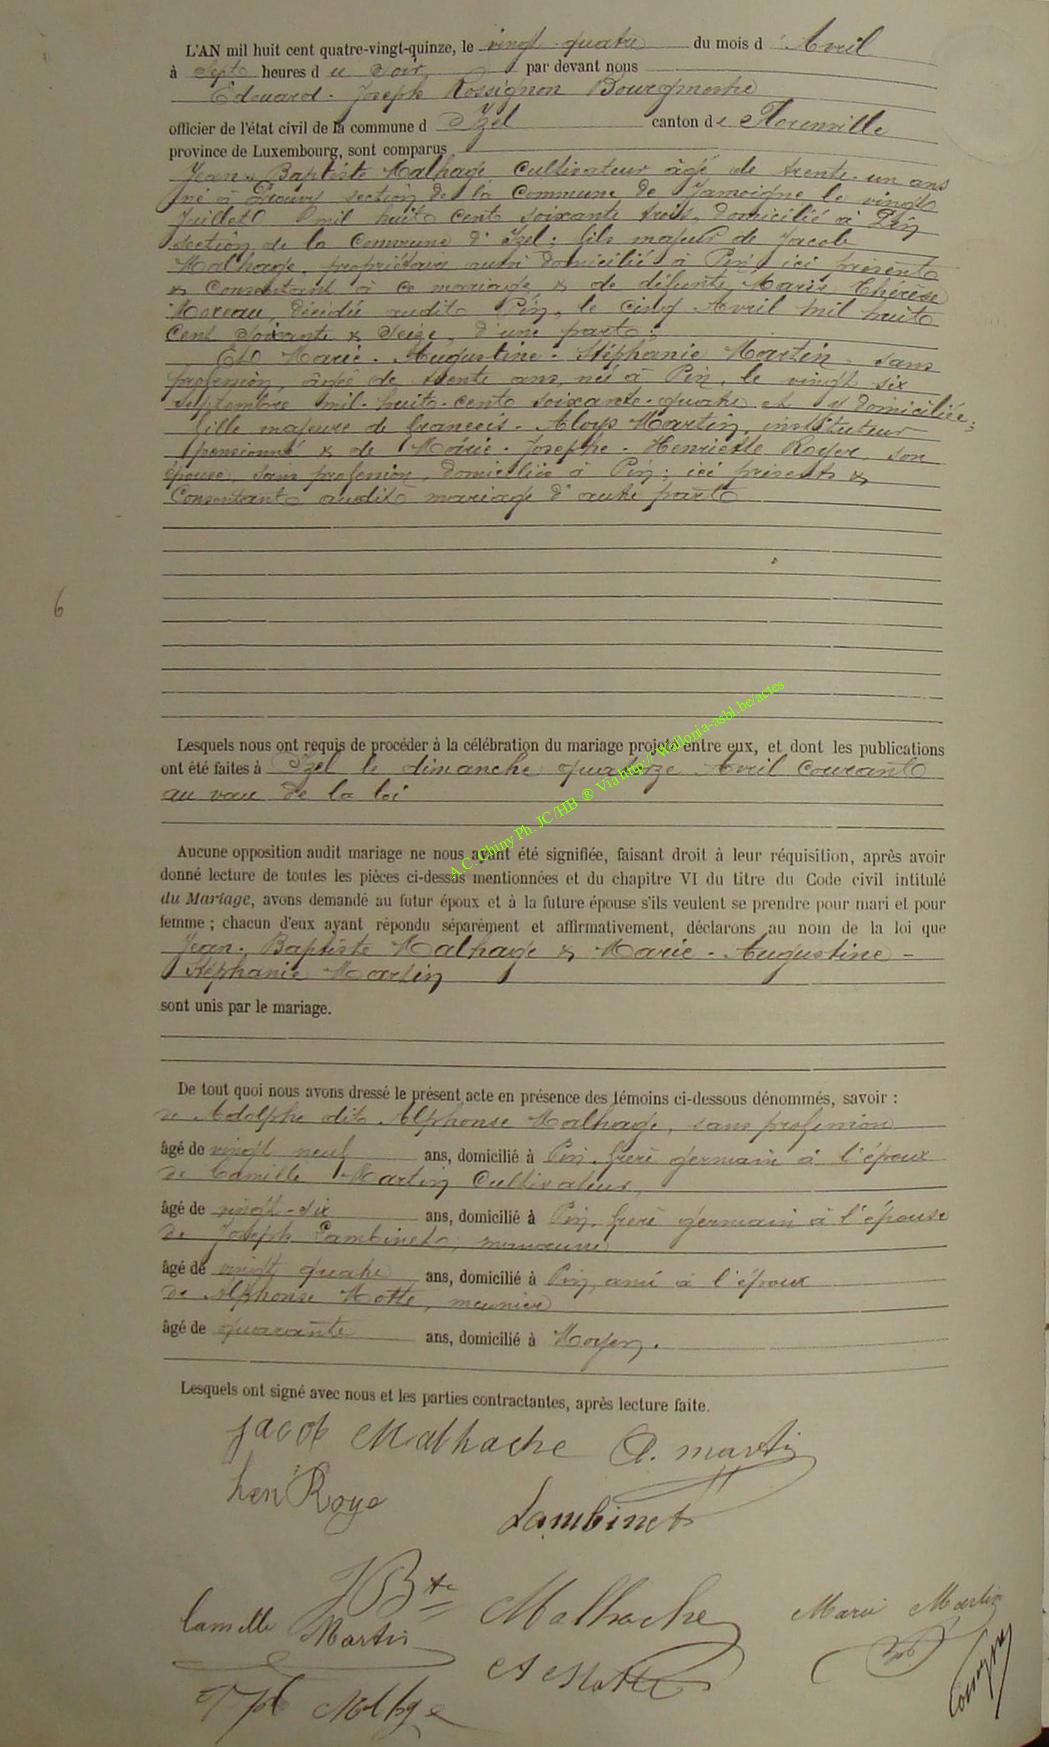 L'AN mil huit cent quatre-vingt-quinze, le vingt-quatre du mois d'Avril
à Sept heures du Soir, par devant nous
Edouard-Joseph Rossignon Bourgmestre
officier de l'état civil de la commune d'Izel canton de Florenville
province de Luxembourg, sont comparus
Jean-Baptiste Malhage, Cultivateur âgé de trente-un ans
né à section de la Commune de Jamoigne le vingt
Juillet mil huit cent soixante trois, domicilié à Pin
section de la Commune d'Izel; fils majeur de Jacob
Malhage, propriétaire aussi domicilié à Pin, ici présent
& Consentant à ce mariage, & de défunte Marie Thérèse
Moreau, décédée audit Pin, le cinq Avril mil huit
Cent Soixante & Seize, d'une part;
Et Marie-Augustine-Stéphanie Martin, sans
profession, âgée de trente ans, née à Pin, le vingt six
Septembre mil-huit-cent soixante-quatre et y domiciliée;
fille majeure de François-Aloys Martin, instituteur
pensionné & de Marie-Josephe-Henriette Royer, son
épouse, sans profession, domiciliés à Pin; ici présents &
Consentants audit mariage d'autre part
6
Lesquels nous ont requis de procéder à la célébration du mariage projeté entre eux, et dont les publications
ont été faites à Izel le dimanche quatorze Avril Courant
au vœu de la loi
Aucune opposition audit mariage ne nous ayant été signifiée, faisant droit à leur réquisition, après avoir
donné lecture de toutes les pièces ci-dessus mentionnées et du chapitre VI du titre du Code civil intitulé
du Mariage, avons demandé au futur époux et à la future épouse s'ils veulent se prendre pour mari et pour
femme ; chacun d'eux ayant répondu séparément et affirmativement, déclarons au nom de la loi que
Jean-Baptiste Malhage & Marie-Augustine-
Stéphanie Martin
sont unis par le mariage.
A.C. Chiny Ph. JC/HB ® Via http://Wallonia-asbl.be/actes
De tout quoi nous avons dressé le présent acte en présence des témoins ci-dessous dénommés, savoir :
de Adolphe dit Alphonse Malhage, sans profession
âgé de vingt neuf ans, domicilié à Pin, frère germain à l'époux
de Camille Martin Cultivateur,
âgé de vingt-six ans, domicilié à Pin, frère germain à l'épouse
de Joseph Lambinet,
âgé de vingt quatre ans, domicilié à Pin, ami à l'époux
de Alphonse Motte, meunier
âgé de quarante ans, domicilié à Moyen.
Lesquels ont signé avec nous et les parties contractantes, après lecture faite.
Jacob Malhache A. Martin
hen Roye Lambinet
JBte Malhache Marie Martin
Camille Martin
A Motte